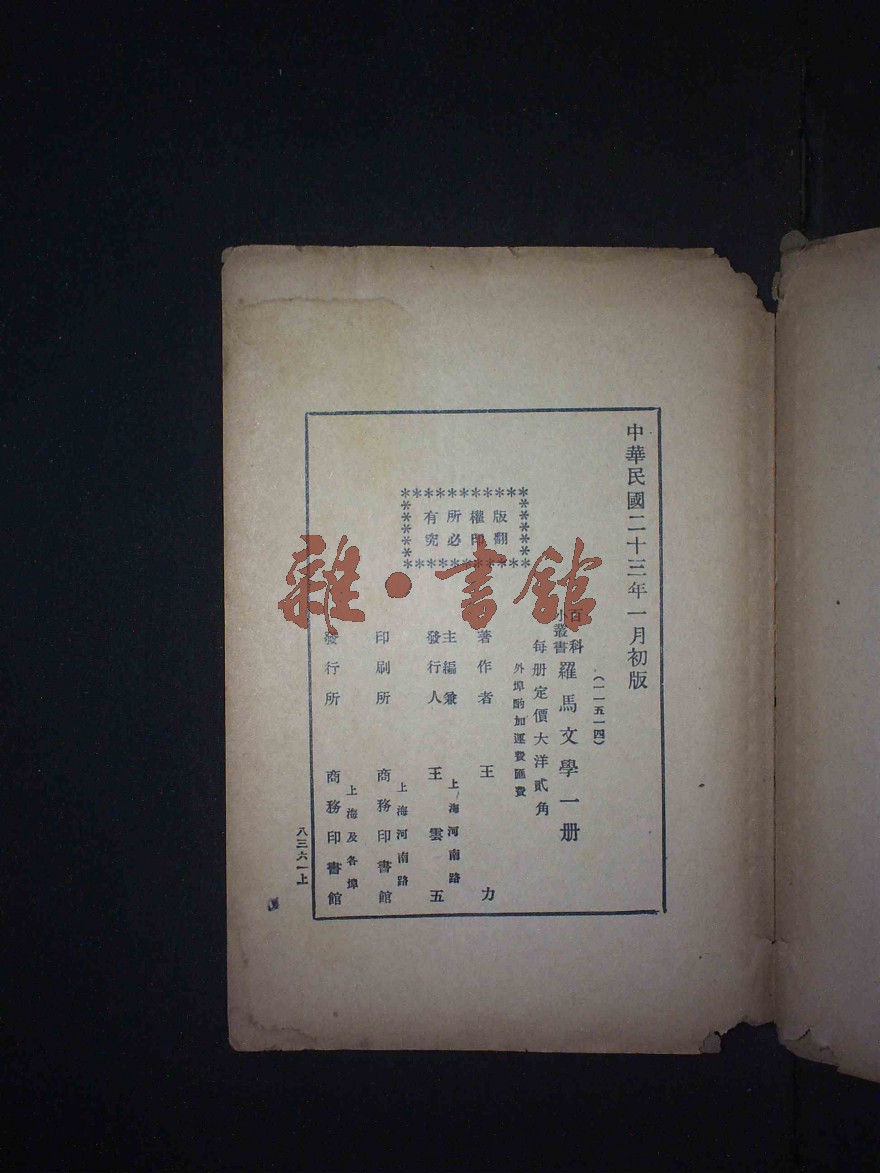 中華民國二十三年一月初版
(一一五一四)
百科
小叢書
羅馬文學一册
每册定價大洋貳角
外埠酌加運費匯費
版權所有
翻印必究
著作者 王力
上海河南路
主編兼
發行人 王雲五
上海河南路
印刷所 商務印書館
上海及各埠
發行所 商務印書館
八三六一上
雜·書館